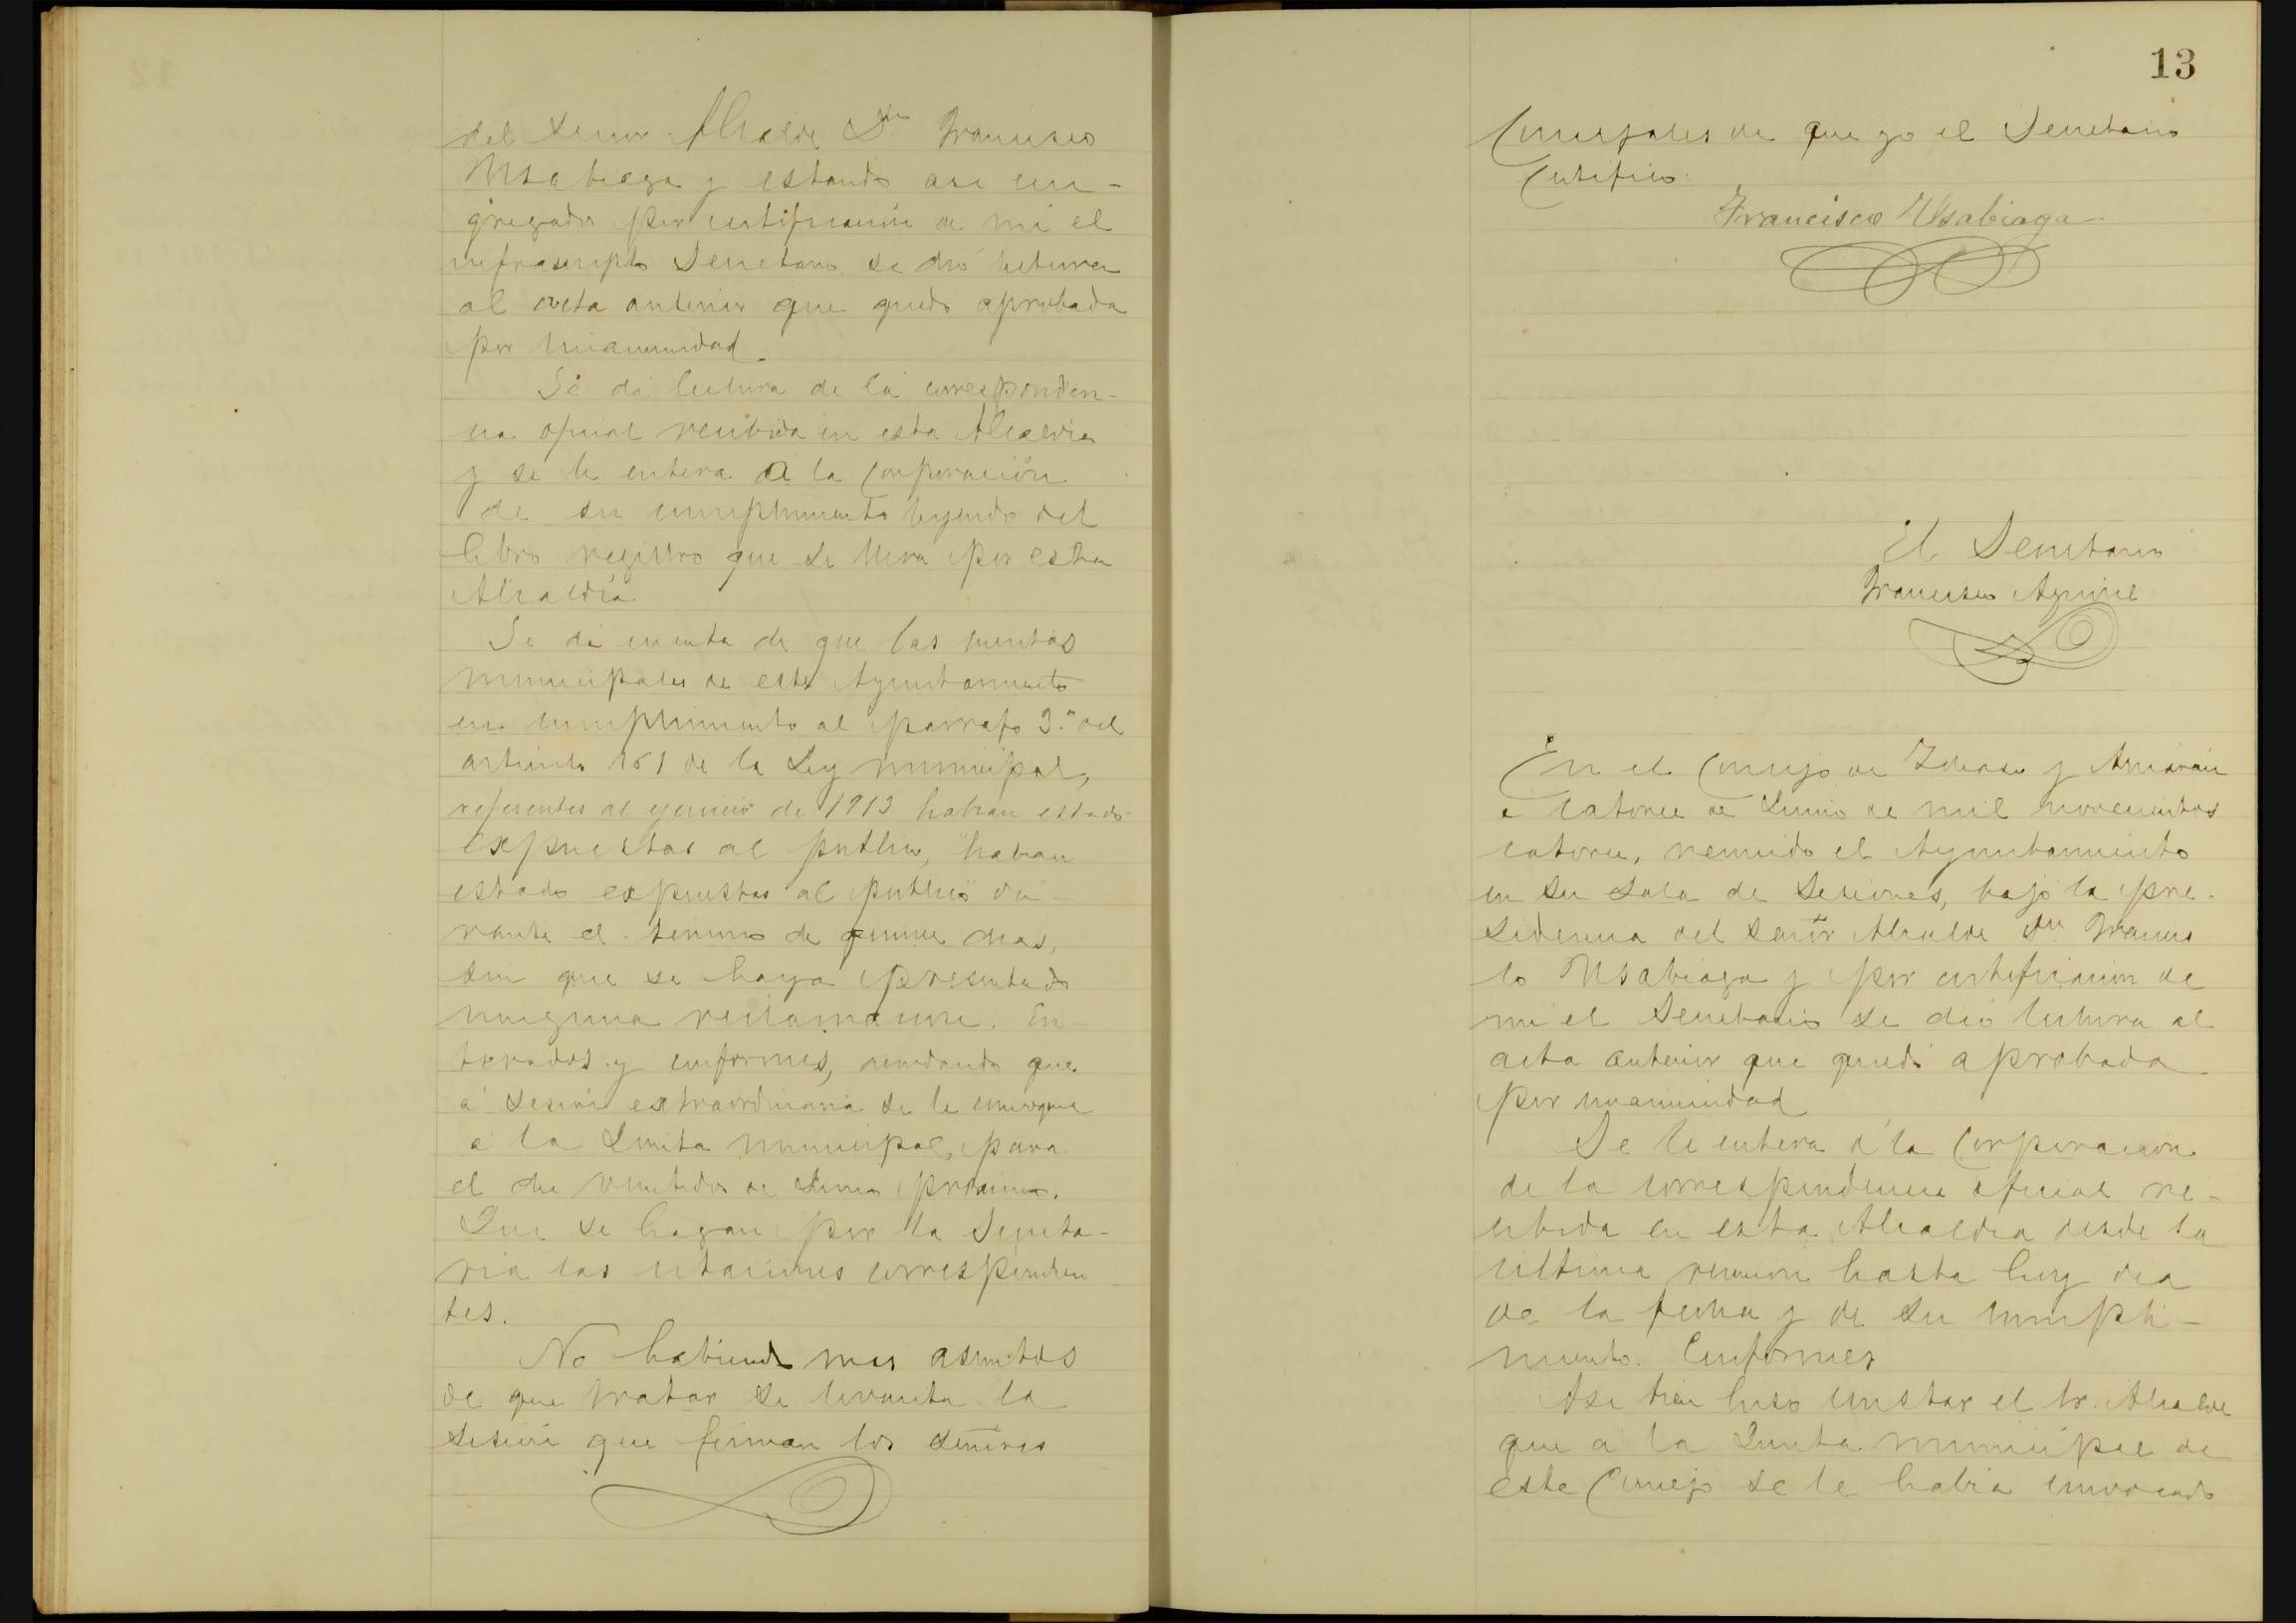 del Señor Alcalde Dn Francisco
Usabiaga y estando asi con-
gregados por certificación de mi el
infrascripto Secretario se dió lectura
al acta anterior que quedó aprobada
por unanimidad.
Se dá lectura de la corresponden-
cia oficial recibida en esta Alcaldia
y se le entera a la Corporación
de su cumplimiento leyendo del
libro registro que se lleva por esta
Alcaldía
Se dá cuenta de que las cuentas
municipales de este Ayuntamiento
en cumplimiento al parrafo 3.º del
articulo 161 de la Ley municipal,
referentes al ejercicio de 1913 habian estado
expuestas al publico, "habian
estado expuestas al publico" du-
rante el termino de quince dias,
sin que se haya presentado
ninguna reclamacion. En-
terados y conformes, acordando que
á sesión extraordinaria se le convoque
á la Junta municipal, para
el dia veintidos de Junio proximo.
Que se hagan por la Secreta-
ria las citaciones correspondien
tes.
No habiendo mas asuntos
de que tratar se levanta la
sesión que firman los señores
13
Concejales de que yo el Secretario
Certifico:
Francisco Usabiaga
El Secretario
Francisco Aguirre
En el Concejo de Idiazabal y
á catorce de Junio de mil novecientos
catorce, reunido el Ayuntamiento
en su sala de Sesiones, bajo la pre-
sidencia del señor Alcalde Dn Francis
co Usabiaga y por certificacion de
mi el Secretario se dió lectura al
acta anterior que quedó aprobada
por unanimidad
Se le entera á la Corporacion
de la correspondencia oficial re-
cibida en esta Alcaldia desde la
ultima reunion hasta hoy dia
de la fecha y de su cumpli-
miento. Conformes
Asi bien hizo constar el Sr. Alcalde
que a la Junta municipal de
este Concejo se le habia convocado